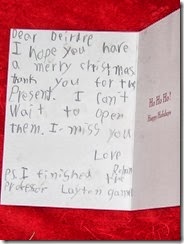 Dear Deirdre
I hope you have
a merry christmas
thank you for the
Present. I can't
Wait to open
them. I miss you
Love
Rohan
P.S I finished the
Professor Layton game
Ho Ho Ho!
Happy Holidays